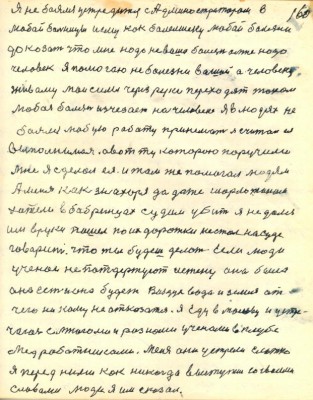 Я не боялся устретится с Администратором В
любой болници и ему как болящему любой болезни
доказат что мне надо не ваша болезн а мне надо
человек Я помогаю не болезни вашой а человеку
живому мои силы через руки переходят током
любая болезн изчезает на человеке Я в людях не
боялся любую работу принимат я считался
Выполнимая. а вот ту которою поручили
мне Я сделал ея. и там же помогал людям
А меня как знахоря да даже
хатели в бабринцах судит убит Я не дался
им в руки пашел по их дорожки не стал на суде
говарит, что ты будеш делат Если люди
ученое не потдержуют истену она была
она ест и она будет Воздух вода и земля от
чего никому не отказатся. Я еду в Москву и устре
чаюс с многоми и разными учеными в клубе
Медработниками. Меня они устрели
Я перед ними как никогда выступил со своими
словами люди Я им сказал.
168